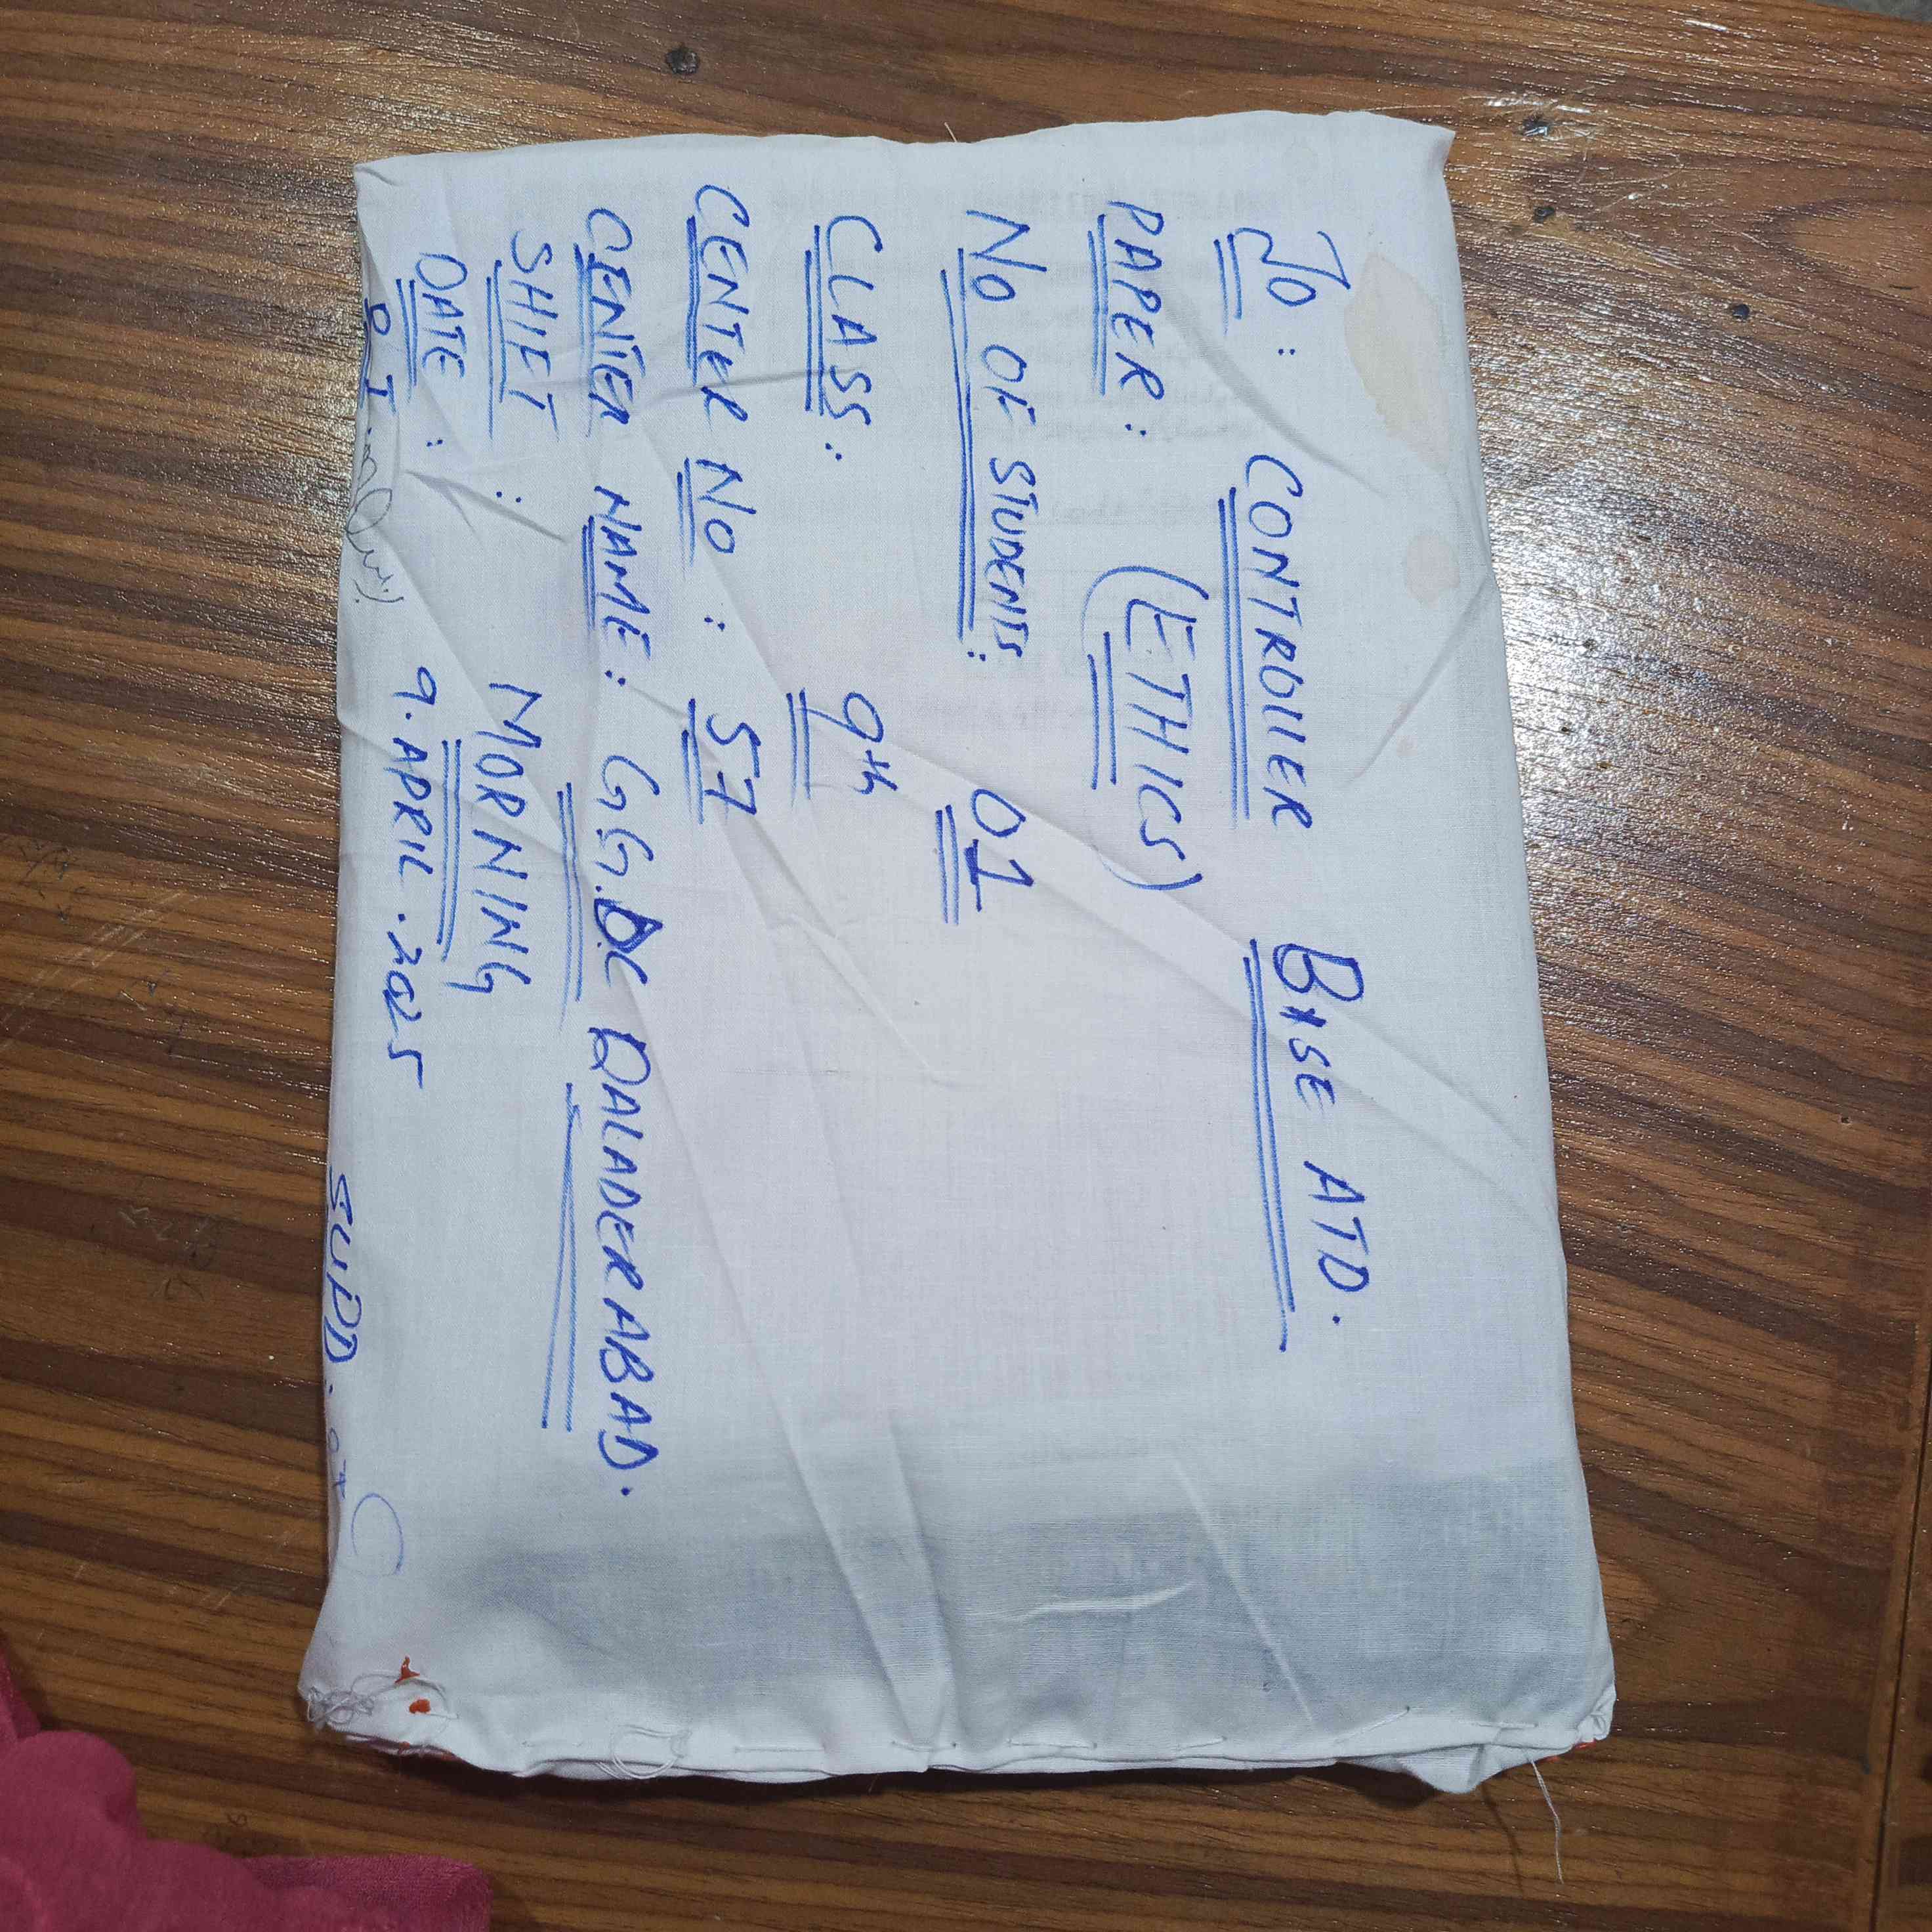 To: CONTROLLER BISE ATD.
PAPER: (ETHICS)
No OF STUDENTS: 01
CLASS: 9th
CENTER NO: 57
CENTER NAME: GG.DC QALADER ABAD.
SHIFT: MORNING
DATE: 9.APRIL.2025
SUPD: